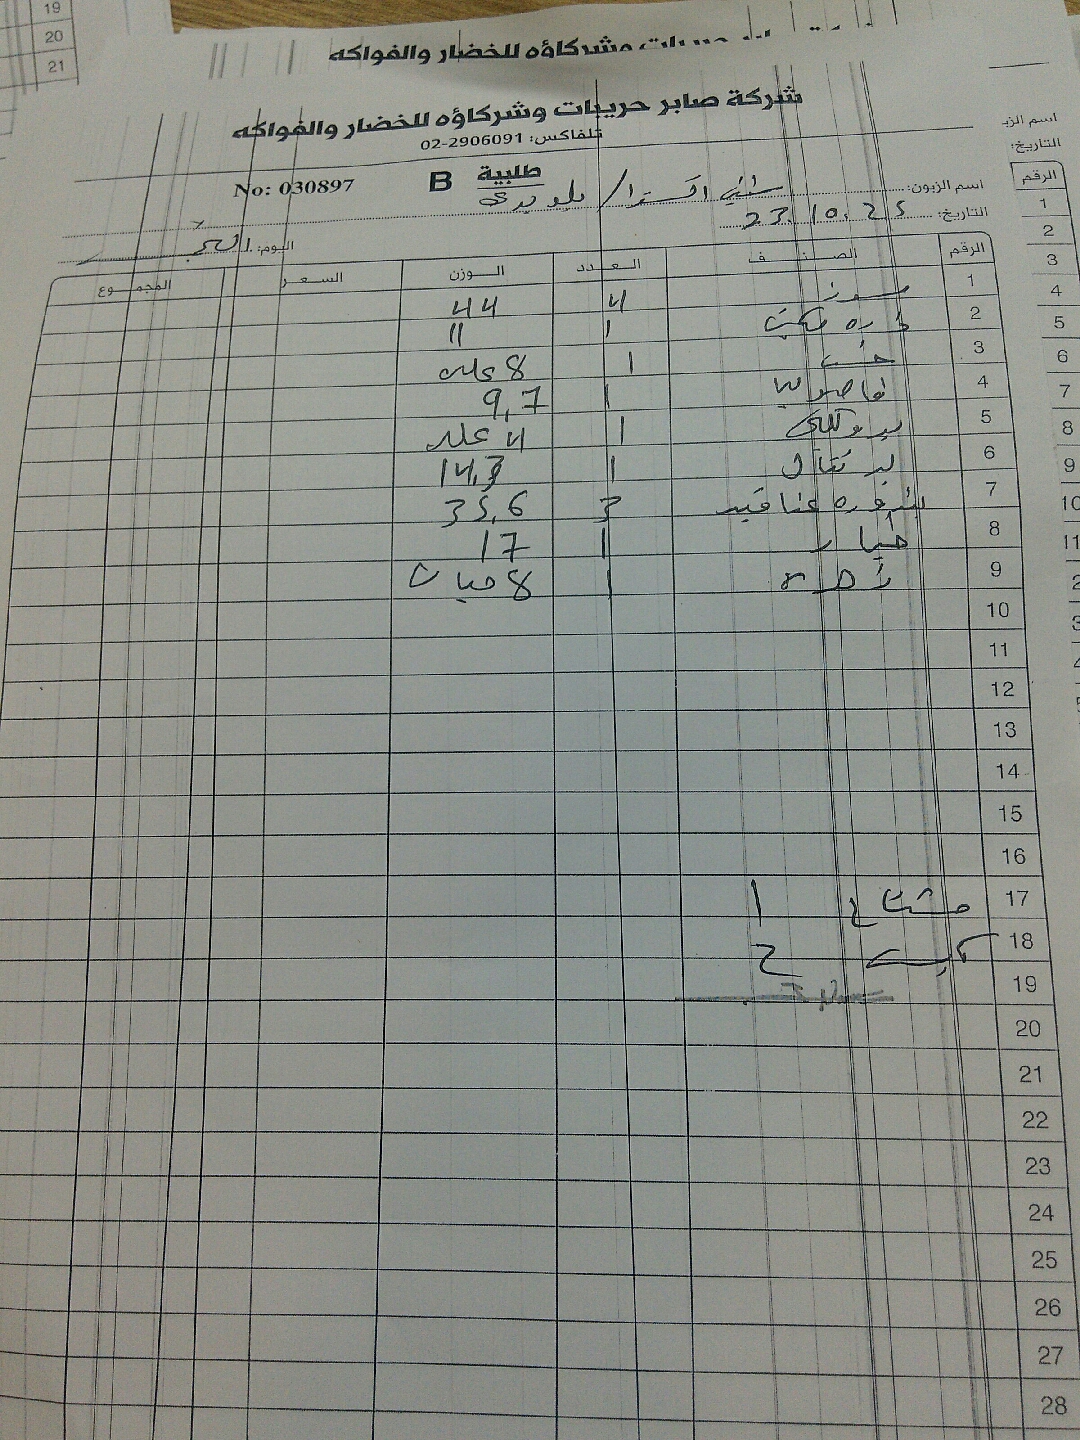 19
20
21
وشركاؤه للخضار والفواكه
شركة صابر حريبات وشركاؤه للخضار والفواكه
تلفاكس: 02-2906091
طلبية B No: 030897
اسم الزبون:
التاريخ: 23.10.25
اليوم:
الرقم الصنف العدد الوزن السعر المجموع
1 موز 4 44
2 1 11
3 خس 1 8 علب
4 فاصوليا 1 9,7
5 بروكلي 1 4 علب
6 برتقال 1 14,3
7 بندوره عناقيد 3 35,6
8 خيار 1 17
9 1 8 حبات
10
11
12
13
14
15
16
17 مشتاح 1
18 كيس 2
19
20
21
22
23
24
25
26
27
28
اسم الز
التاريخ:
الرقم
1
2
3
4
5
6
7
8
9
10
11